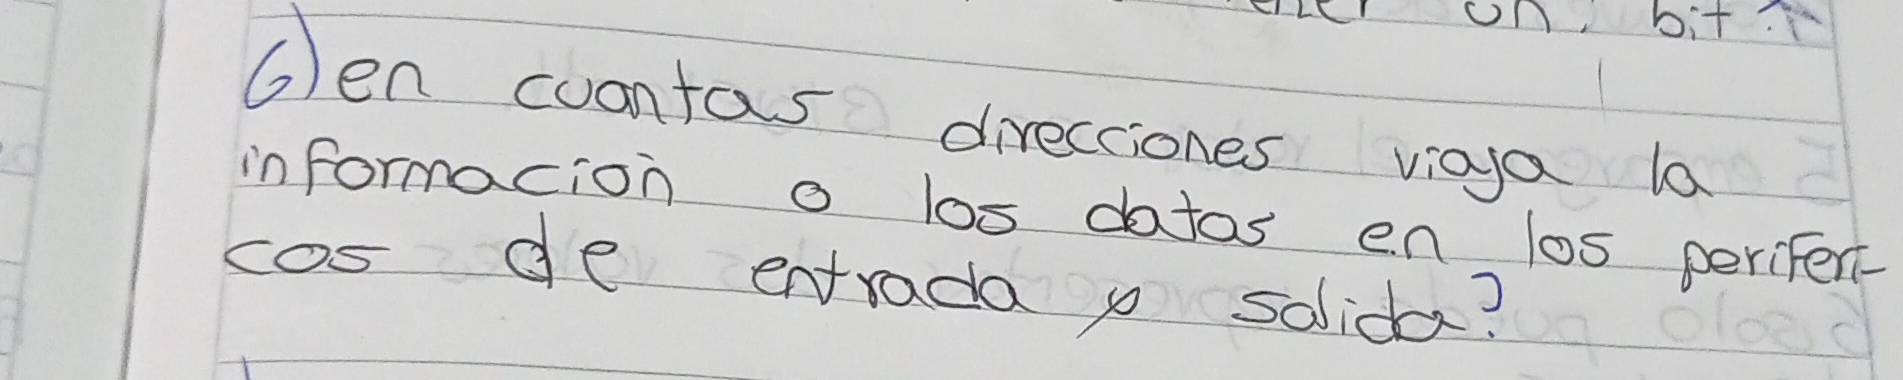 un, bit?
6) en cuantas direcciones viaja la
informacion o los datos en los periferi-
cos de entrada y salida?